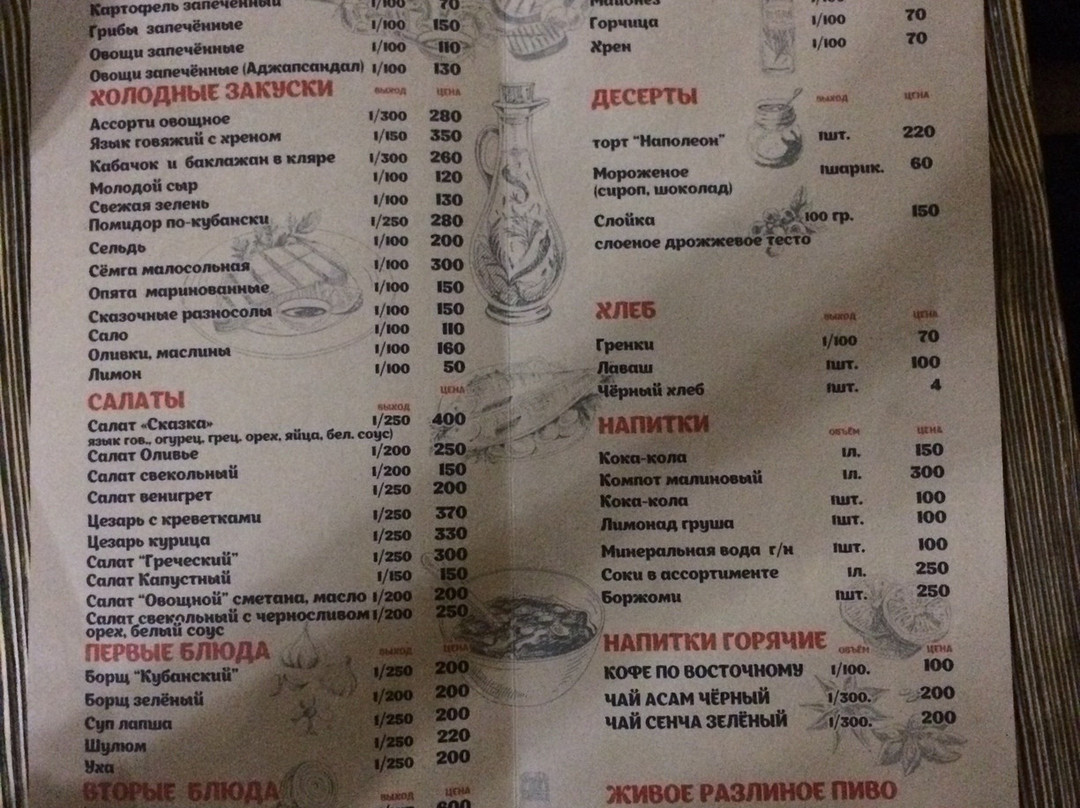 Картофель запечённый 1/100 70
Грибы запечённые 1/100 150
Овощи запечённые 1/100 110
Овощи запечённые (Аджапсандал) 1/100 130
ХОЛОДНЫЕ ЗАКУСКИ ВЫХОД ЦЕНА
Ассорти овощное 1/300 280
Язык говяжий с хреном 1/150 350
Кабачок и баклажан в кляре 1/300 260
Молодой сыр 1/100 120
Свежая зелень 1/100 130
Помидор по-кубански 1/250 280
Сельдь 1/100 200
Сёмга малосольная 1/100 300
Опята маринованные 1/100 150
Сказочные разносолы 1/100 150
Сало 1/100 110
Оливки, маслины 1/100 160
Лимон 1/100 50
САЛАТЫ ВЫХОД ЦЕНА
Салат «Сказка» 1/250 400
язык гов., огурец, грец. орех, яйца, бел. соус)
Салат Оливье 1/200 250
Салат свекольный 1/200 150
Салат венигрет 1/250 200
Цезарь с креветками 1/250 370
Цезарь курица 1/250 330
Салат "Греческий" 1/250 300
Салат Капустный 1/150 150
Салат "Овощной" сметана, масло 1/200 200
Салат свекольный с черносливом 1/200 250
орех, белый соус
ПЕРВЫЕ БЛЮДА ВЫХОД ЦЕНА
Борщ "Кубанский" 1/250 200
Борщ зелёный 1/200 200
Суп лапша 1/250 200
Шулюм 1/250 220
Уха 1/250 200
ВТОРЫЕ БЛЮДА ВЫХОД ЦЕНА
600
Майонез 1/100
Горчица 1/100 70
Хрен 1/100 70
ДЕСЕРТЫ ВЫХОД ЦЕНА
торт "Наполеон" 1шт. 220
Мороженое 1шарик. 60
(сироп, шоколад)
Слойка 100 гр. 150
слоеное дрожжевое тесто
ХЛЕБ ВЫХОД ЦЕНА
Гренки 1/100 70
Лаваш 1шт. 100
Чёрный хлеб 1шт. 4
НАПИТКИ ОБЪЁМ ЦЕНА
Кока-кола 1л. 150
Компот малиновый 1л. 300
Кока-кола 1шт. 100
Лимонад груша 1шт. 100
Минеральная вода г/н 1шт. 100
Соки в ассортименте 1л. 250
Боржоми 1шт. 250
НАПИТКИ ГОРЯЧИЕ ОБЪЁМ ЦЕНА
КОФЕ ПО ВОСТОЧНОМУ 1/100. 100
ЧАЙ АСАМ ЧЁРНЫЙ 1/300. 200
ЧАЙ СЕНЧА ЗЕЛЁНЫЙ 1/300. 200
ЖИВОЕ РАЗЛИНОЕ ПИВО